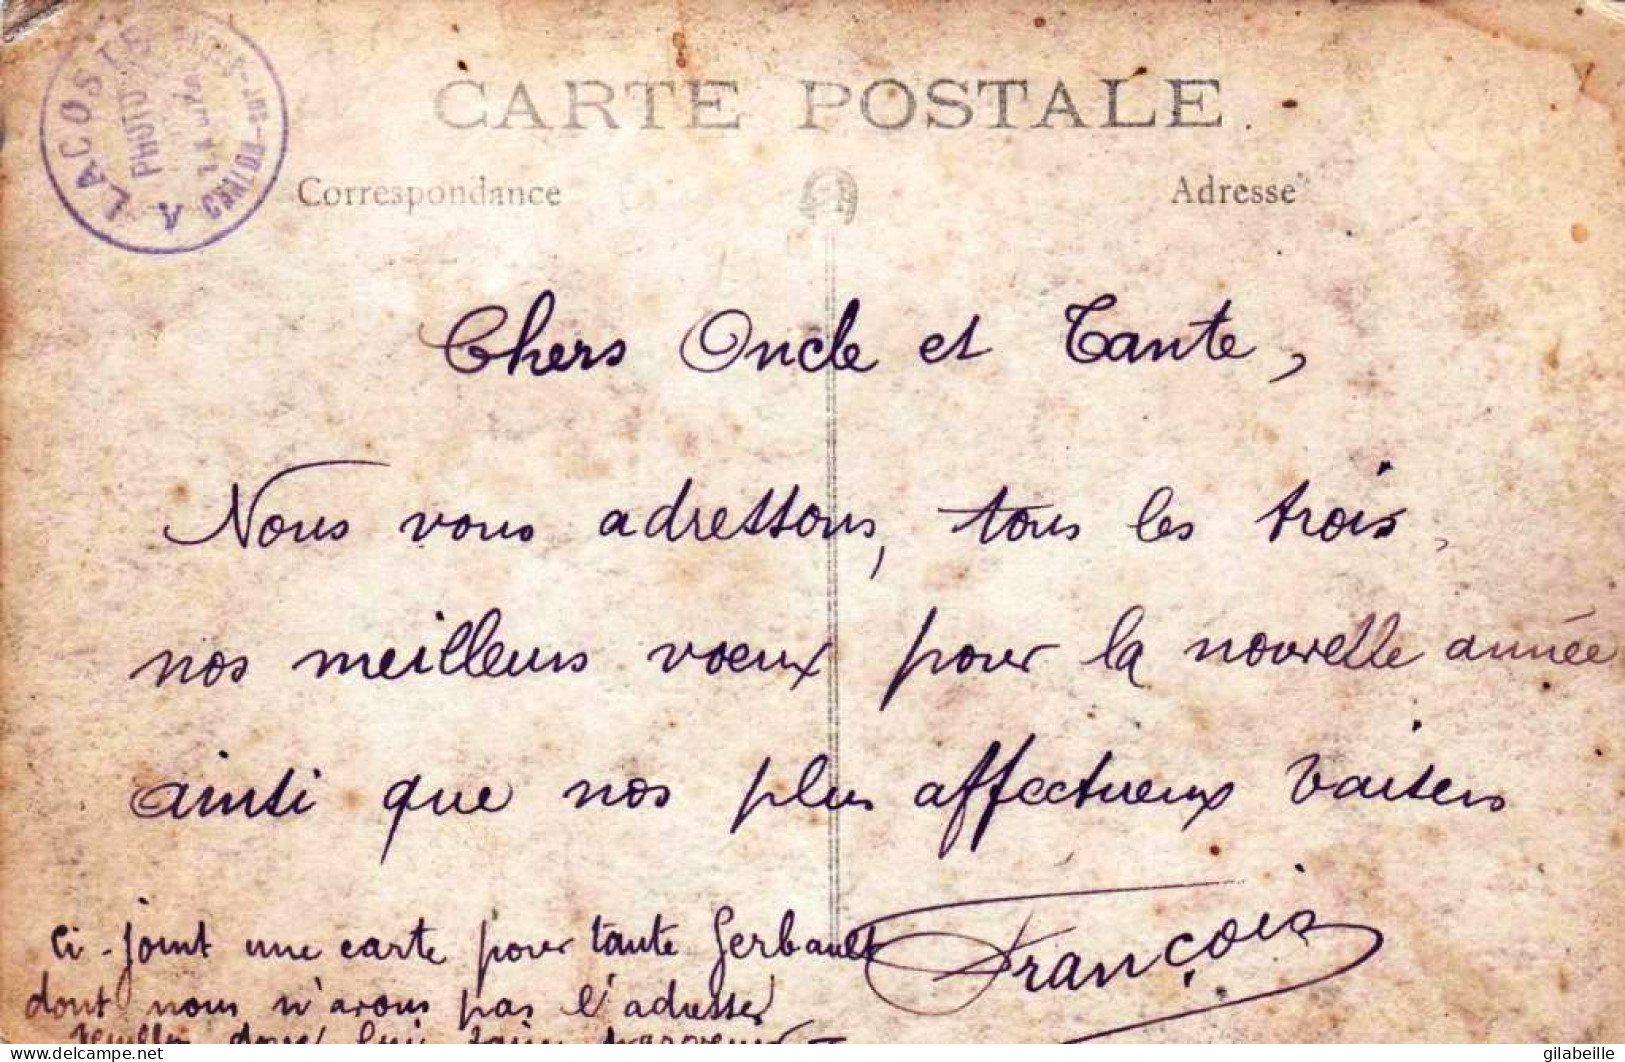 A LACOSTE
PHOTO
CARTE POSTALE
Correspondance
Adresse
Chers Oncle et Tante,
Nous vous adressons, tous les trois,
nos meilleurs voeux pour la nouvelle année
ainsi que nos plus affectueux baisers
François
Ci-joint une carte pour tante Gerbault
dont nous n'avons pas l'adresse
Veuillez donc lui faire parvenir
delcampe.net
gilabeille